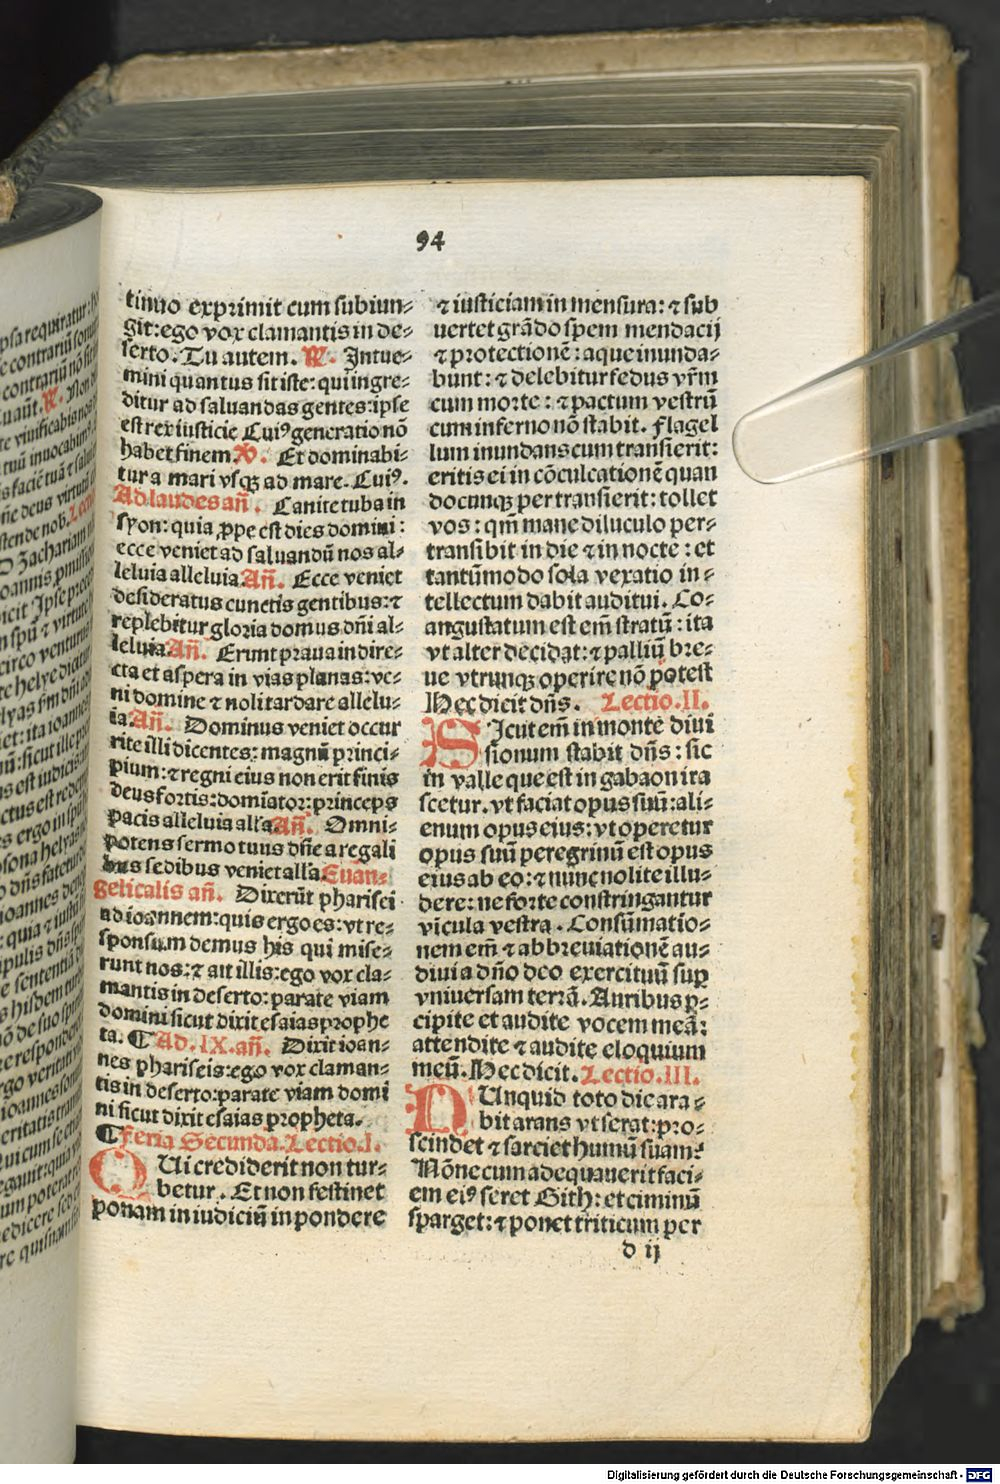 94
tinuo exprimit cum subiun⸗
git: ego vox clamantis in de⸗
serto. Tu autem. R. Intue⸗
mini quantus sit iste: qui ingre⸗
ditur ad saluandas gentes: ipse
est rex iusticie Cuiꝰ generatio nō
habet finem. V. Et dominabi⸗
tur a mari vsqꝫ ad mare. Cuiꝰ.
Ad laudes añ. Canite tuba in
syon: quia ꝓpe est dies domini:
ecce veniet ad saluandū nos al⸗
leluia alleluia. Añ. Ecce veniet
desideratus cunctis gentibus: ⁊
replebitur gloria domus dñi al⸗
leluia. Añ. Erunt praua in dire⸗
cta et aspera in vias planas: ve⸗
ni domine ⁊ noli tardare allelu⸗
ia. Añ. Dominus veniet occur
rite illi dicentes: magnū princi⸗
pium: ⁊ regni eius non erit finis
deus fortis: domīator: princeps
pacis alleluia alľa. Añ. Omni⸗
potens sermo tuus dñe a regali
bus sedibus veniet alľa. Euan⸗
gelicalis añ. Dixerūt pharisei
ad ioannem: quis ergo es: vt re⸗
sponsum demus his qui mise⸗
runt nos: ⁊ ait illis: ego vox cla⸗
mantis in deserto: parate viam
domini sicut dixit esaias prophe
ta. ¶ Ad. IX. añ. Dixit ioan⸗
nes phariseis: ego vox claman⸗
tis in deserto: parate viam domi
ni sicut dixit esaias propheta.
¶ Feria Secunda. Lectio. I.
QUi crediderit non tur⸗
betur. Et non festinet
ponam in iudiciū in pondere
⁊ iusticiam in mensura: ⁊ sub
uertet grādo spem mendacij
⁊ protectionē: aque inunda⸗
bunt: ⁊ delebitur fedus vr̄m
cum morte: ⁊ pactum vestrū
cum inferno nō stabit. Flagel
lum inundans cum transierit:
eritis ei in cōculcationē quan
documqꝫ pertransierit: tollet
vos: qm̄ mane diluculo per⸗
transibit in die ⁊ in nocte: et
tantūmodo sola vexatio in⸗
tellectum dabit auditui. Co⸗
angustatum est em̄ stratū: ita
vt alter decidat: ⁊ palliū bre⸗
ue vtrunqꝫ operire nō potest
Hec dicit dñs. Lectio. II.
SIcut em̄ in monte diui
sionum stabit dñs: sic
in valle que est in gabaon ira
scetur. vt faciat opus suū: ali⸗
enum opus eius: vt operetur
opus suū peregrinū est opus
eius ab eo: ⁊ nunc nolite illu⸗
dere: ne forte constringantur
vicula vestra. Consūmatio⸗
nem em̄ ⁊ abbreuiationē au⸗
diui a dño deo exercituū suꝑ
vniuersam terrā. Auribus ꝑ⸗
cipite et audite vocem meā:
attendite ⁊ audite eloquium
meū. Hec dicit. Lectio. III.
NUnquid toto die ara⸗
bit arans vt serat: pro⸗
scindet ⁊ sarciet humū suam?
Nōne cum adequauerit faci⸗
em eiꝰ seret Gith: et ciminū
sparget: ⁊ ponet triticum per
d ij
Digitalisierung gefördert durch die Deutsche Forschungsgemeinschaft - DFG